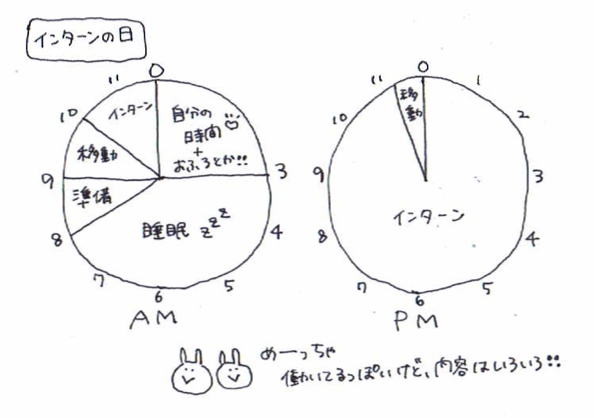 インターンの日
0
11
10
9
8
7
6
5
4
3
インターン
移動
準備
自分の
時間
+
おふろとか!!
睡眠 zzz
AM
0
1
2
3
4
5
6
7
8
9
10
11
移動
インターン
PM
めーっちゃ
働いてるっぽいけど、内容はいろいろ!!